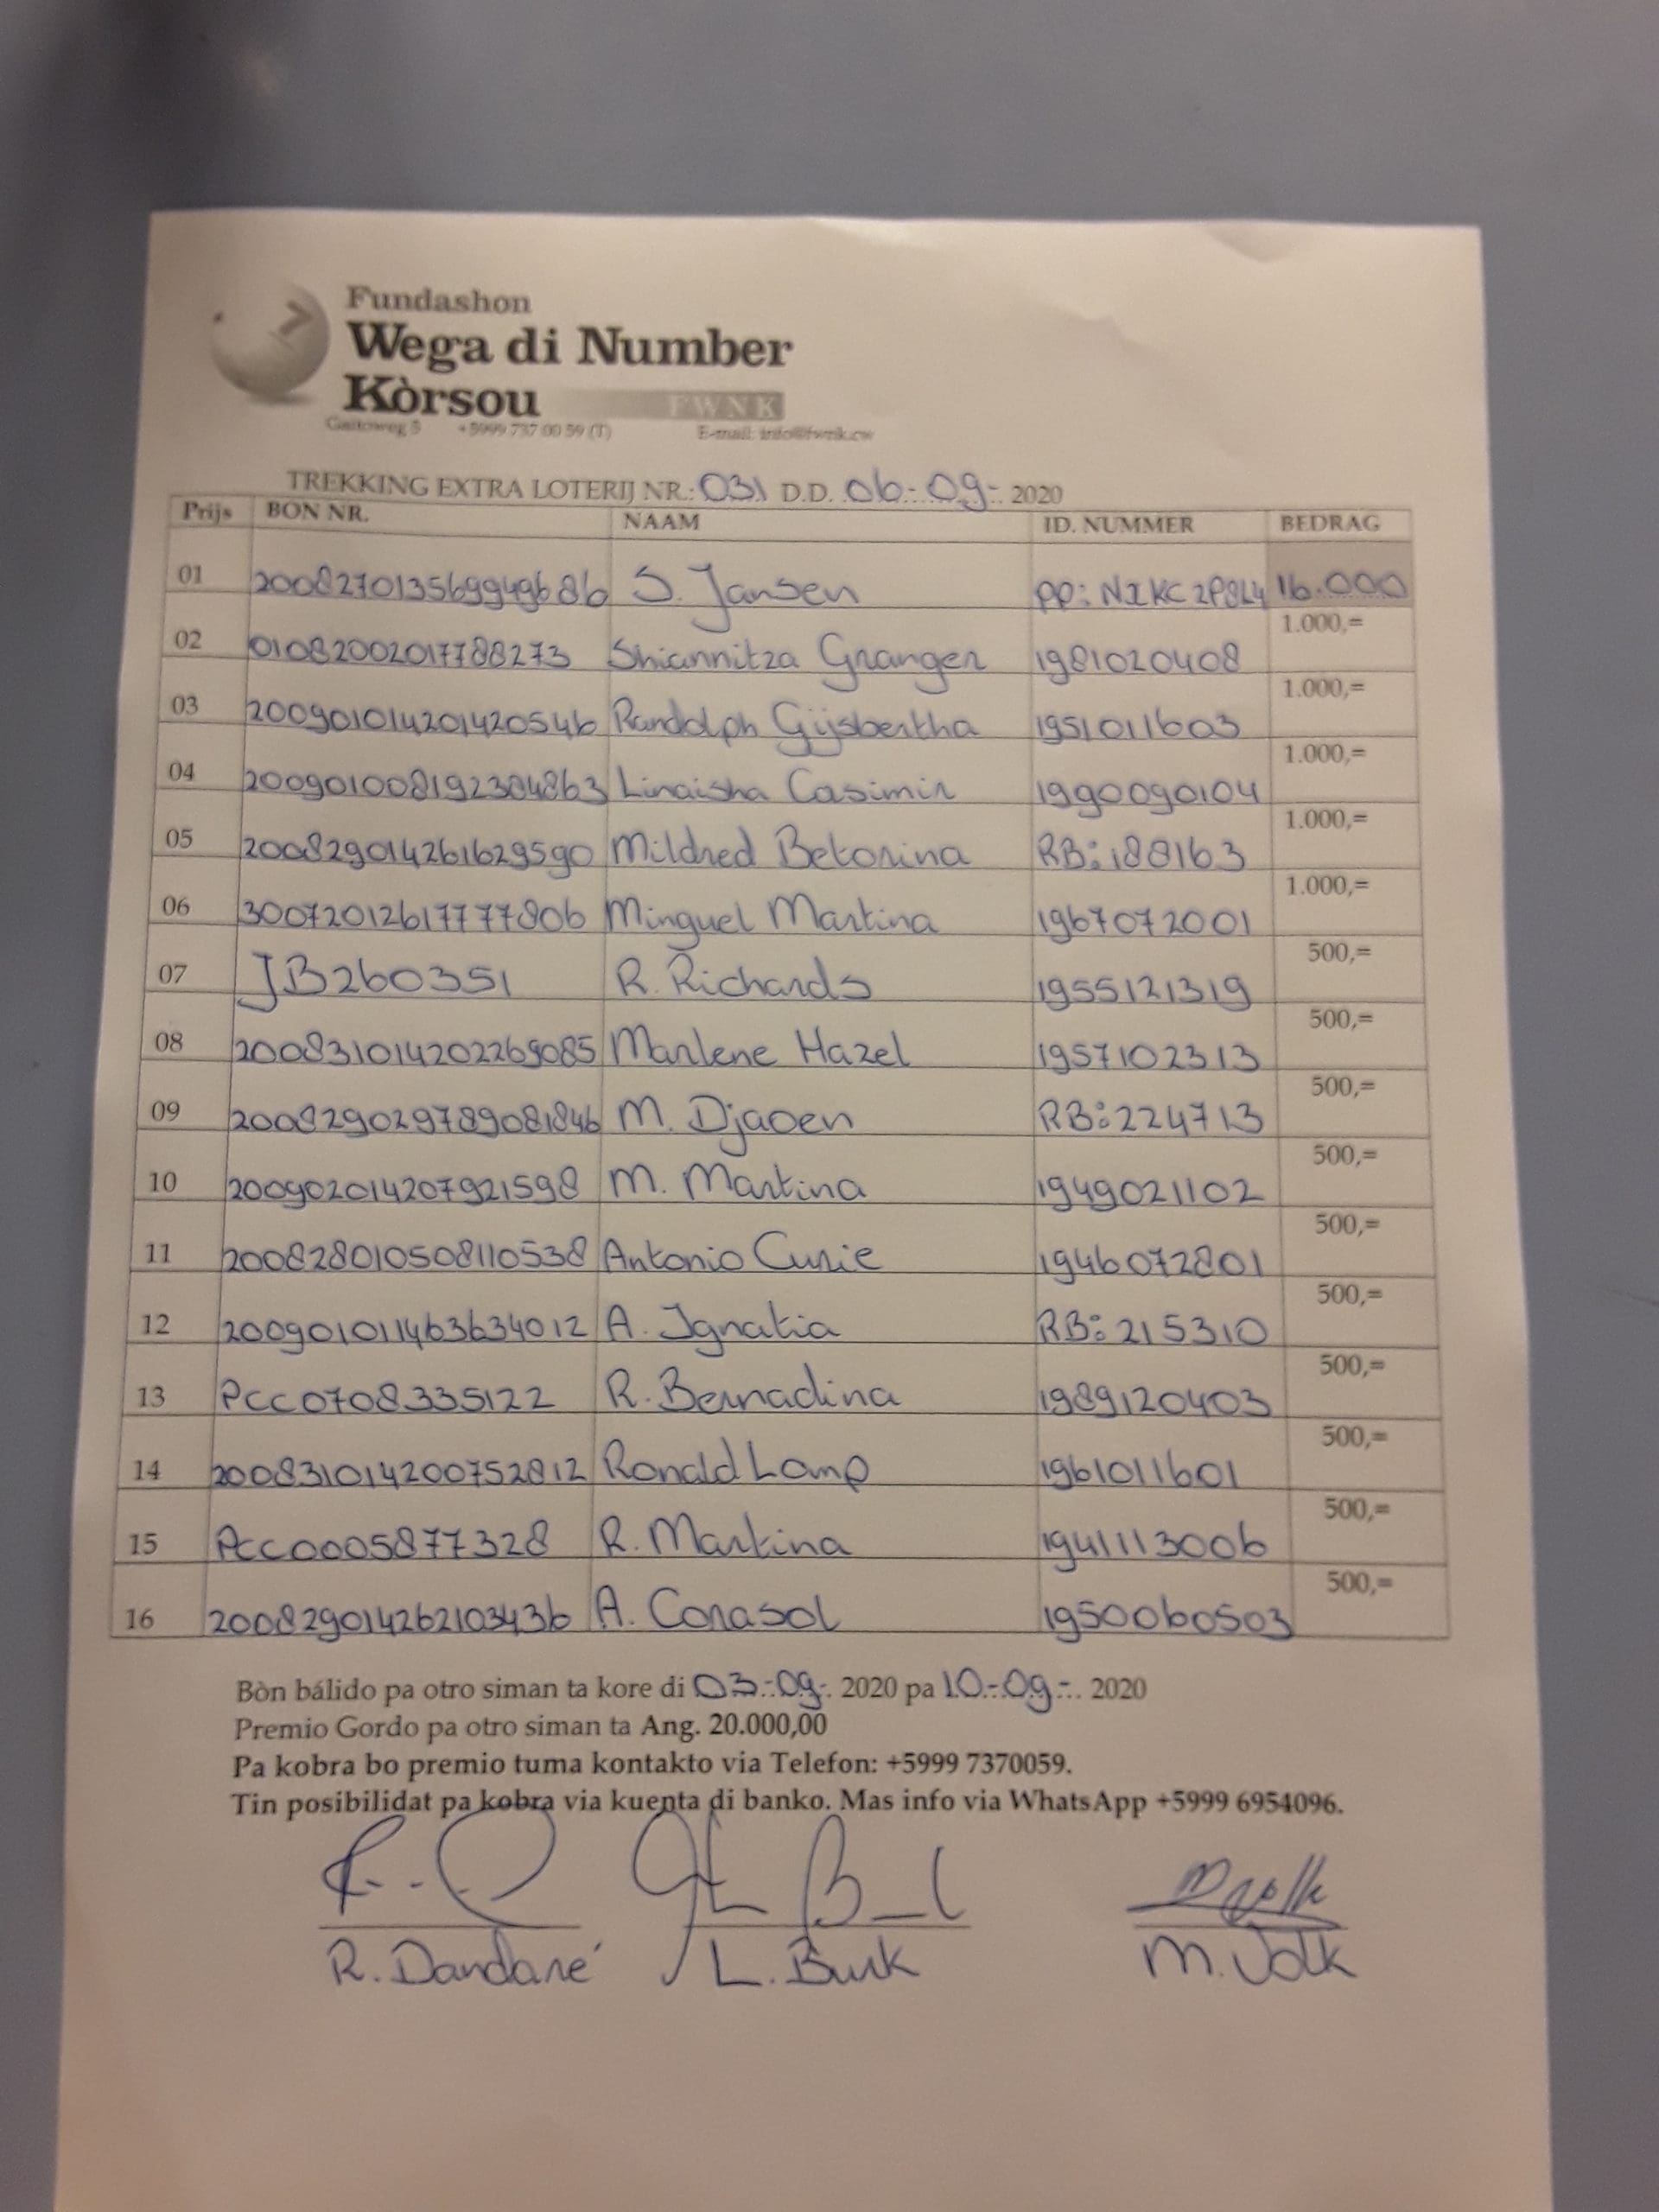 Fundashon
Wega di Number
Kòrsou FWNK
Gaitoweg 5 +5999 737 00 59 (T) E-mail: info@fwnk.cw
TREKKING EXTRA LOTERIJ NR.: 031 D.D. 06-09- 2020
Prijs BON NR. NAAM ID. NUMMER BEDRAG
01 20082701356994968 6 S. Jansen PP: N1KC2P8L4 16.000
02 01082002017788273 Shiannitza Granger 1981020408 1.000,=
03 200901014201420546 Randolph Gijsbertha 1951011603 1.000,=
04 2009010081923 04863 Linaisha Casimir 1990090104 1.000,=
05 200829014261629590 Mildred Betorina RB: 188163 1.000,=
06 30072012617777806 Minguel Martina 1967072001 1.000,=
07 JB260351 R. Richards 1955121319 500,=
08 2008310142022690 85 Marlene Hazel 1957102313 500,=
09 2008290297890818 46 M. Djaoen RB: 224713 500,=
10 200902014207921598 M. Martina 1949021102 500,=
11 200828010508110538 Antonio Curie 1946072801 500,=
12 200901011463634012 A. Ignatia RB: 215310 500,=
13 PCC0708335122 R. Bernadina 1989120403 500,=
14 200831014200752812 Ronald Lamp 1961011601 500,=
15 PCC0005877328 R. Martina 1941113006 500,=
16 200829014262103436 A. Corasol 1950060503 500,=
Bòn bálido pa otro siman ta kore di 03-09-. 2020 pa 10-09-. 2020
Premio Gordo pa otro siman ta Ang. 20.000,00
Pa kobra bo premio tuma kontakto via Telefon: +5999 7370059.
Tin posibilidat pa kobra via kuenta di banko. Mas info via WhatsApp +5999 6954096.
R. Dandaré L. Burk M. Volk